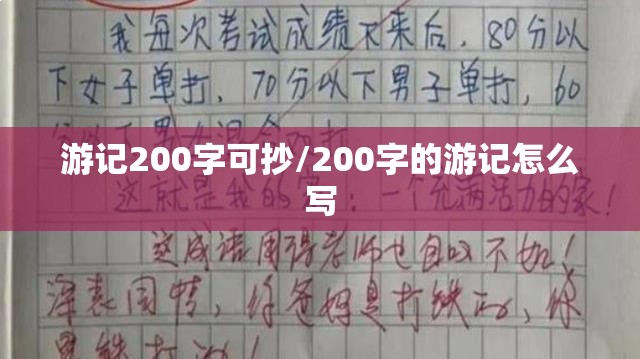 我每次考试成绩下来后，80分以
下女子单打，70分以下男子单打，60
分以下男女混合双打
游记200字可抄/200字的游记怎么
写
这就是我的家：一个充满活力的家！
这成语用得老师也自叹不如！
深表同情，你爸妈是打铁的，你
是铁打的！